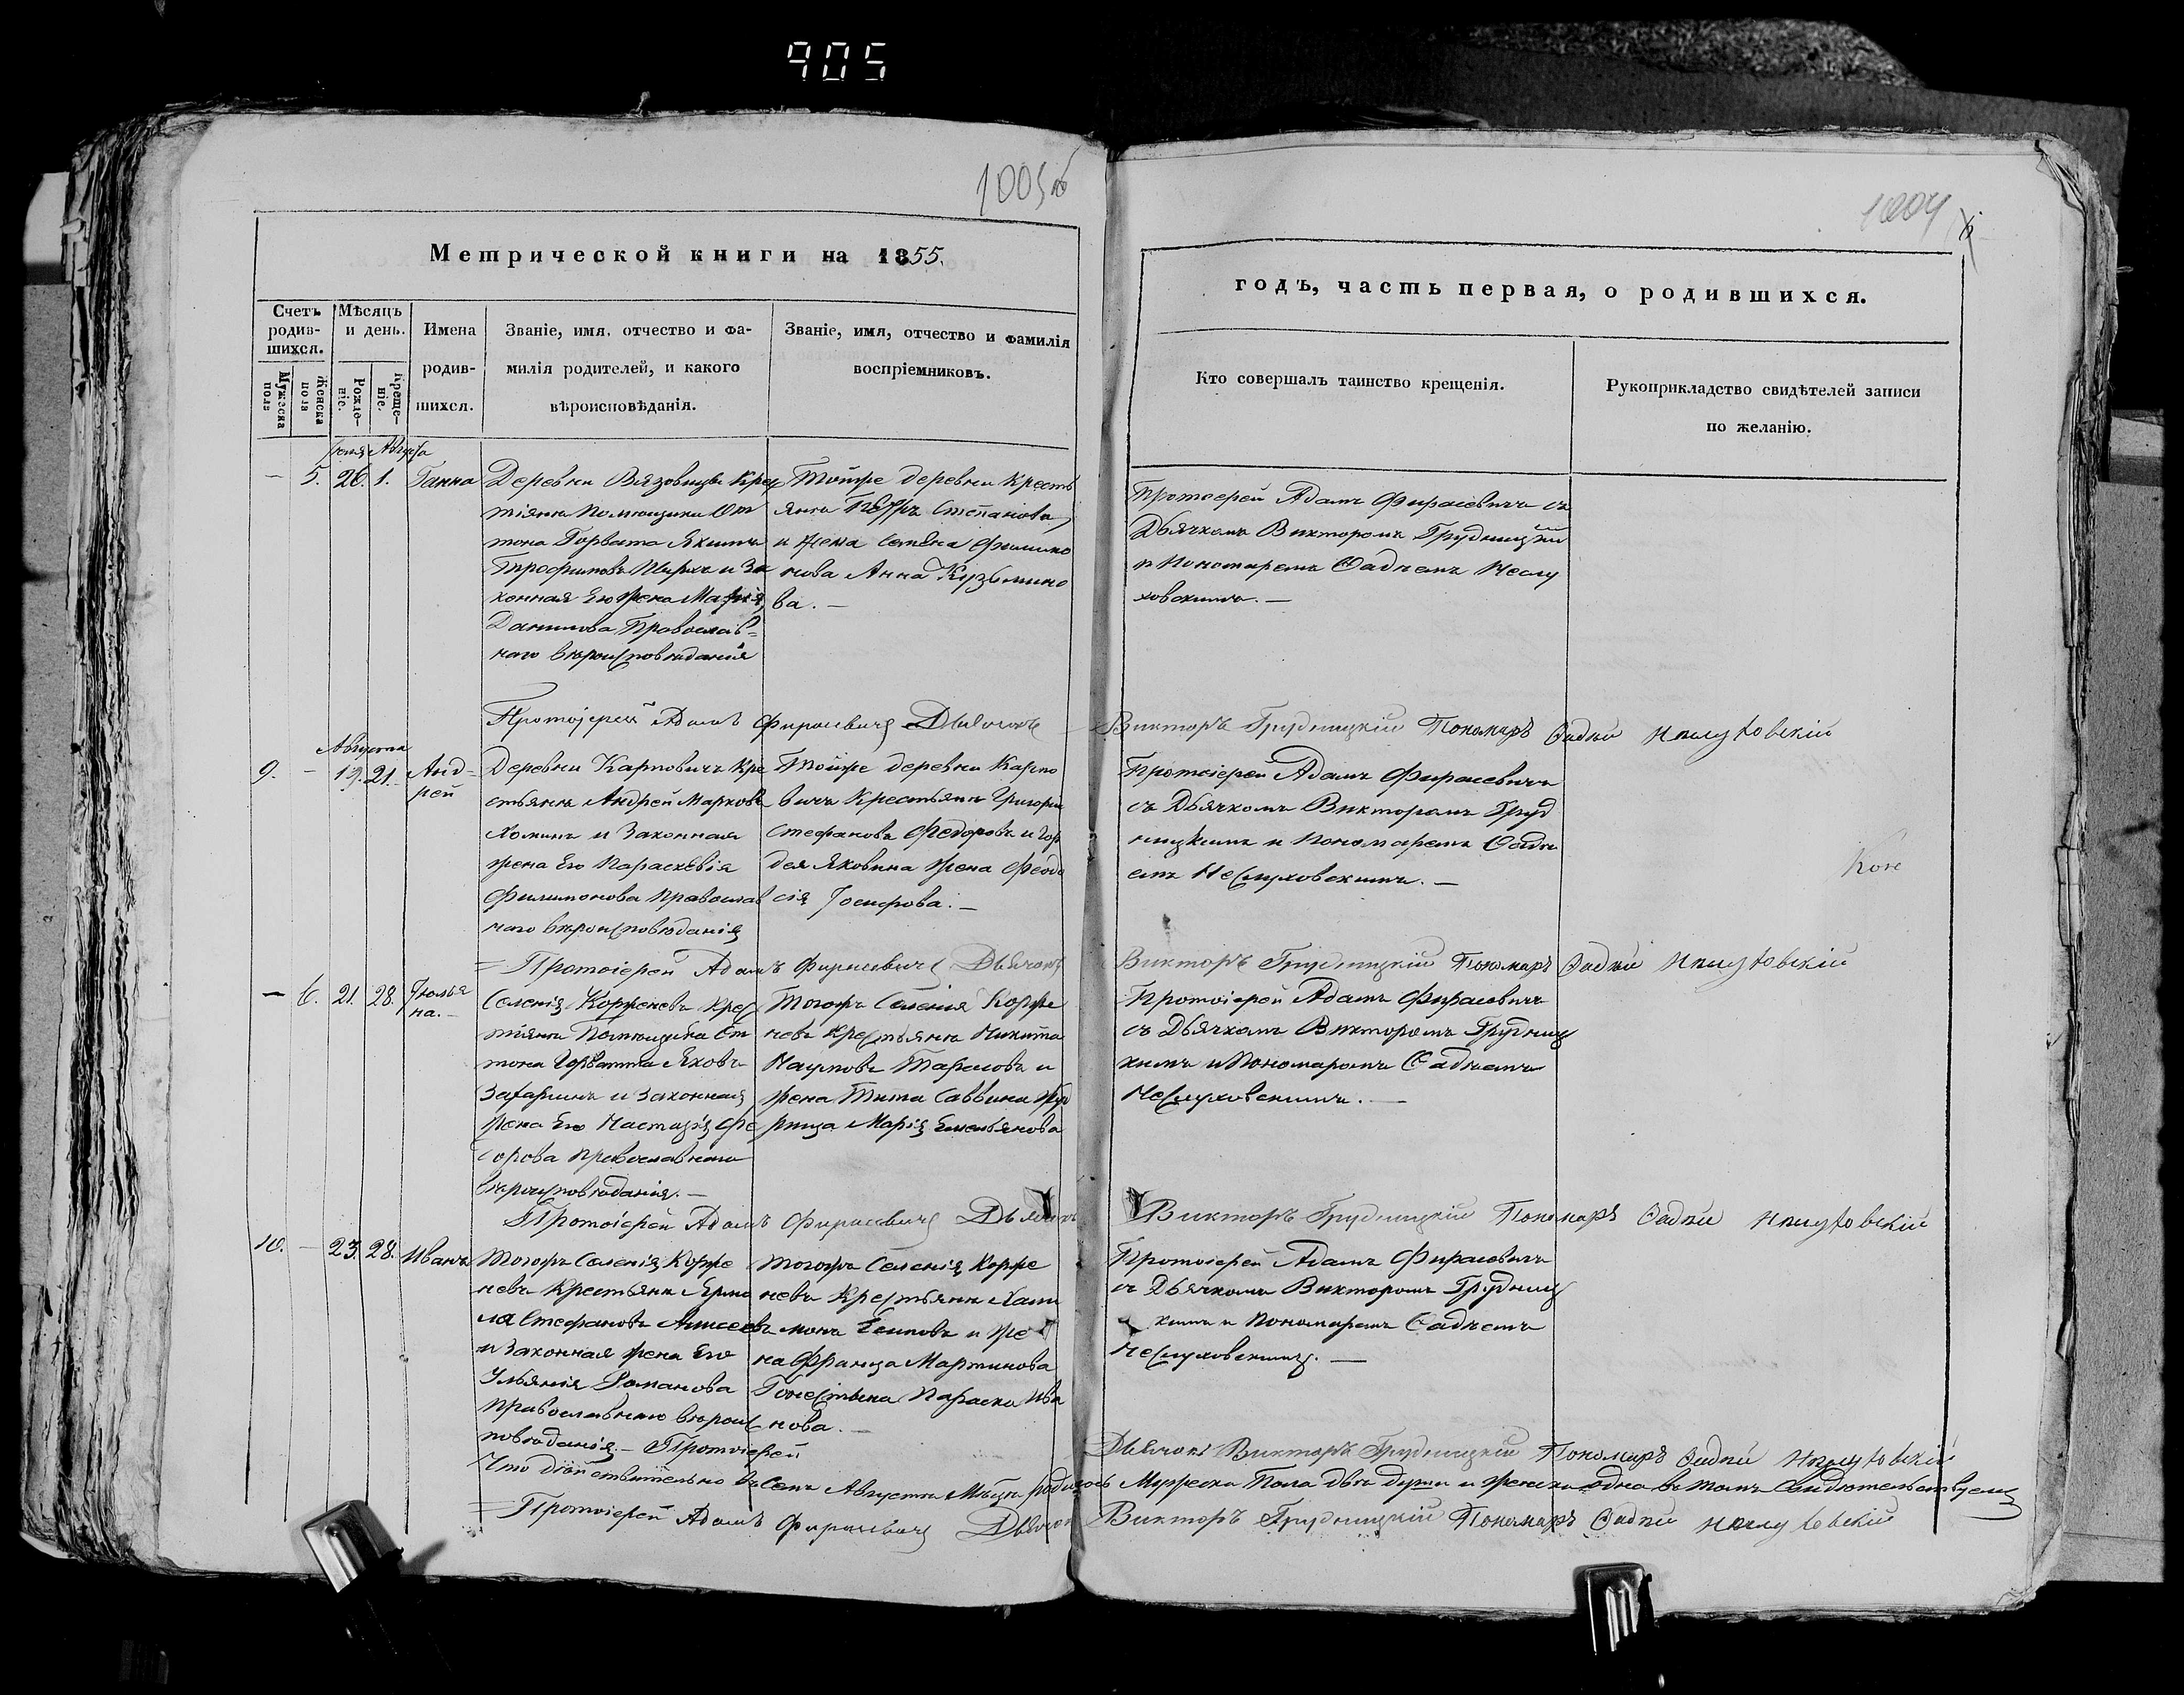 905
1003об
1004
Метрической книги на 1855.
годъ, часть первая, о родившихся.
Счетъ родившихся.
Мужеска пола
Женска пола
Мѣсяцъ и день.
Рождение.
Крещение.
Имена родившихся.
Званіе, имя, отчество и фамилія родителей, и какого вѣроисповѣданія.
Званіе, имя, отчество и фамилія воспріемниковъ.
Кто совершалъ таинство крещенія.
Рукоприкладство свидѣтелей записи по желанію.
Августа
— 5. 26. 1. Ганна
Деревни Вязовицы Крес
тіянъ Помѣщика От
тона Горвата Якимъ
Трофимовъ и За
конная Его жена Марія
Данилова Православ=
наго вѣроисповѣданія
Тойже деревни Кресть
янъ Петръ Степановъ
и жена Семена Филимо
нова Анна Кузьмино
ва. —
Протоерей Адамъ Фирасевичъ съ
Дьячкомъ Викторомъ Грудницкимъ
и Пономаремъ Фадѣемъ Неслу
ховскимъ. —
Протоіерей Адамъ Фирасевичъ Дьячокъ Викторъ Грудницкій Пономаръ Фадѣй Неслуховскій
Августа
9. — 19. 21. Анд=
рей
Деревни Карповичъ Кре
стьянъ Андрей Марковъ
Хоминъ и Законная
жена Его Параскевія
Филимонова Православ
наго вѣроисповѣданія
Тойже деревни Карпо
вичъ Крестьянъ Григорій
Стефановъ Федоровъ и Гор
дея Яковина жена Феодо
сія Іосифова. —
Протоіерей Адамъ Фирасевичъ
съ Дьячкомъ Викторомъ Груд
ницкимъ и Пономаремъ Фадѣ
емъ Неслуховскимъ. —
= Протоіерей Адамъ Фирасевичъ Дьячокъ Викторъ Грудницкій Пономаръ Фадѣй Неслуховскій
— 6. 21. 28. Юлья
на. —
Селенія Корженевъ Крес
тьянъ Помѣщика От
тона Горватта Яковъ
Захаринъ и Законная
жена Его Настазія Фе
дорова Православнаго
вѣроисповѣданія. —
Тогожъ Селенія Корже
невъ Крестьянъ Никита
Наумовъ Тарасовъ и
жена Тита Саввина
Марія Емельянова
Протоіерей Адамъ Фирасевичъ
съ Дьячкомъ Викторомъ Грудниц
кимъ и Пономаромъ Фадѣемъ
Неслуховскимъ. —
Протоіерей Адамъ Фирасевичъ Дьячокъ Викторъ Грудницкій Пономаръ Фадѣй Неслуховскій
10. — 23. 28. Иванъ
Тогожъ Селенія Корже
невъ Крестьянъ Ярмо
ла Стефановъ
и Законная жена Его
Ульянія Романова
Православнаго вѣроис
повѣданія. — Протоіерей
тогожъ Селенія Корже
невъ Крестьянъ
и же
на Франца Мартинова
Параска Ива
нова. —
Протоіерей Адамъ Фирасевичъ
съ Дьячкомъ Викторомъ Грудниц
кимъ и Пономаремъ Фадѣемъ
Неслуховскимъ. —
Дьячокъ Викторъ Грудницкій Пономаръ Фадѣй Неслуховскій
Что дѣйствительно въ семъ Августѣ Мѣсяцѣ родилось Мужеска Пола двѣ души и женска одна въ томъ Свидѣтельствуемъ
= Протоіерей Адамъ Фирасевичъ Дьячокъ Викторъ Грудницкій Пономаръ Фадѣй Неслуховскій